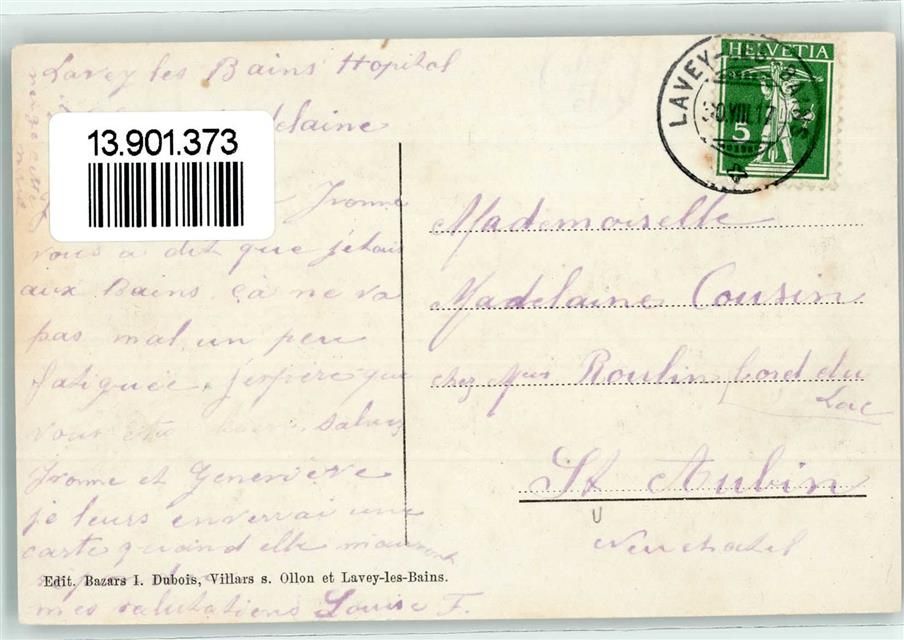 Lavey les Bains Hopital
delaine
Ivonne
vous a dit que j'étais
aux Bains, çà ne va
pas mal, un peu
fatiguée, j'espère que
vous saluez
Ivonne et Geneviève
je leurs enverrai une
carte quand elle
mes salutations Louise F.
Edit. Bazars I. Dubois, Villars s. Ollon et Lavey-les-Bains.
13.901.373
HELVETIA
5
LAVEY-LES-BAINS
VIII.17
Mademoiselle
Madelaine Cousin
chez Roulin bord du
Lac
St Aubin
Neuchatel